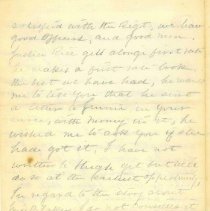 satisfied with the Regt, we have
good officers, and good men.
Justin Rice gets along first rate
he makes a first rate cook
the best we have had, he wants
me to tell you that he sent
a letter to Jennie in your
care, with money in it, he
wished me to ask you if she
had got it, I have not
written to Hugh yet but will
do so at the earliest opportunity
In regard to the story about